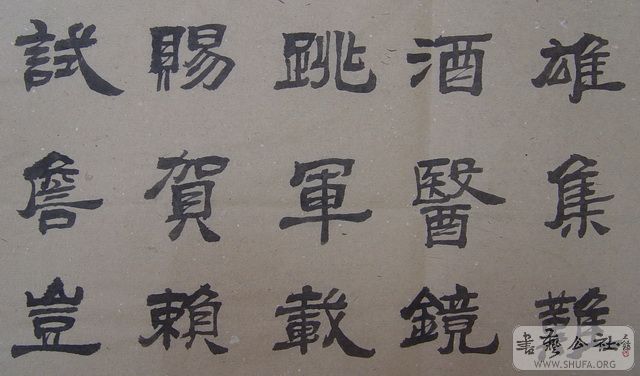 雄集難
酒醫鏡
跳軍載
賜賀賴
試詹豈
書藝公社
WWW.SHUFA.ORG